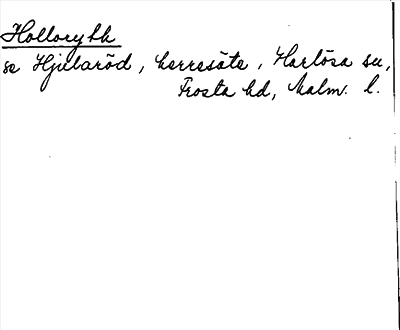 Hollorykk
se Hjularöd, herresäte, Harlösa sn,
Frosta hd, Malm. l.